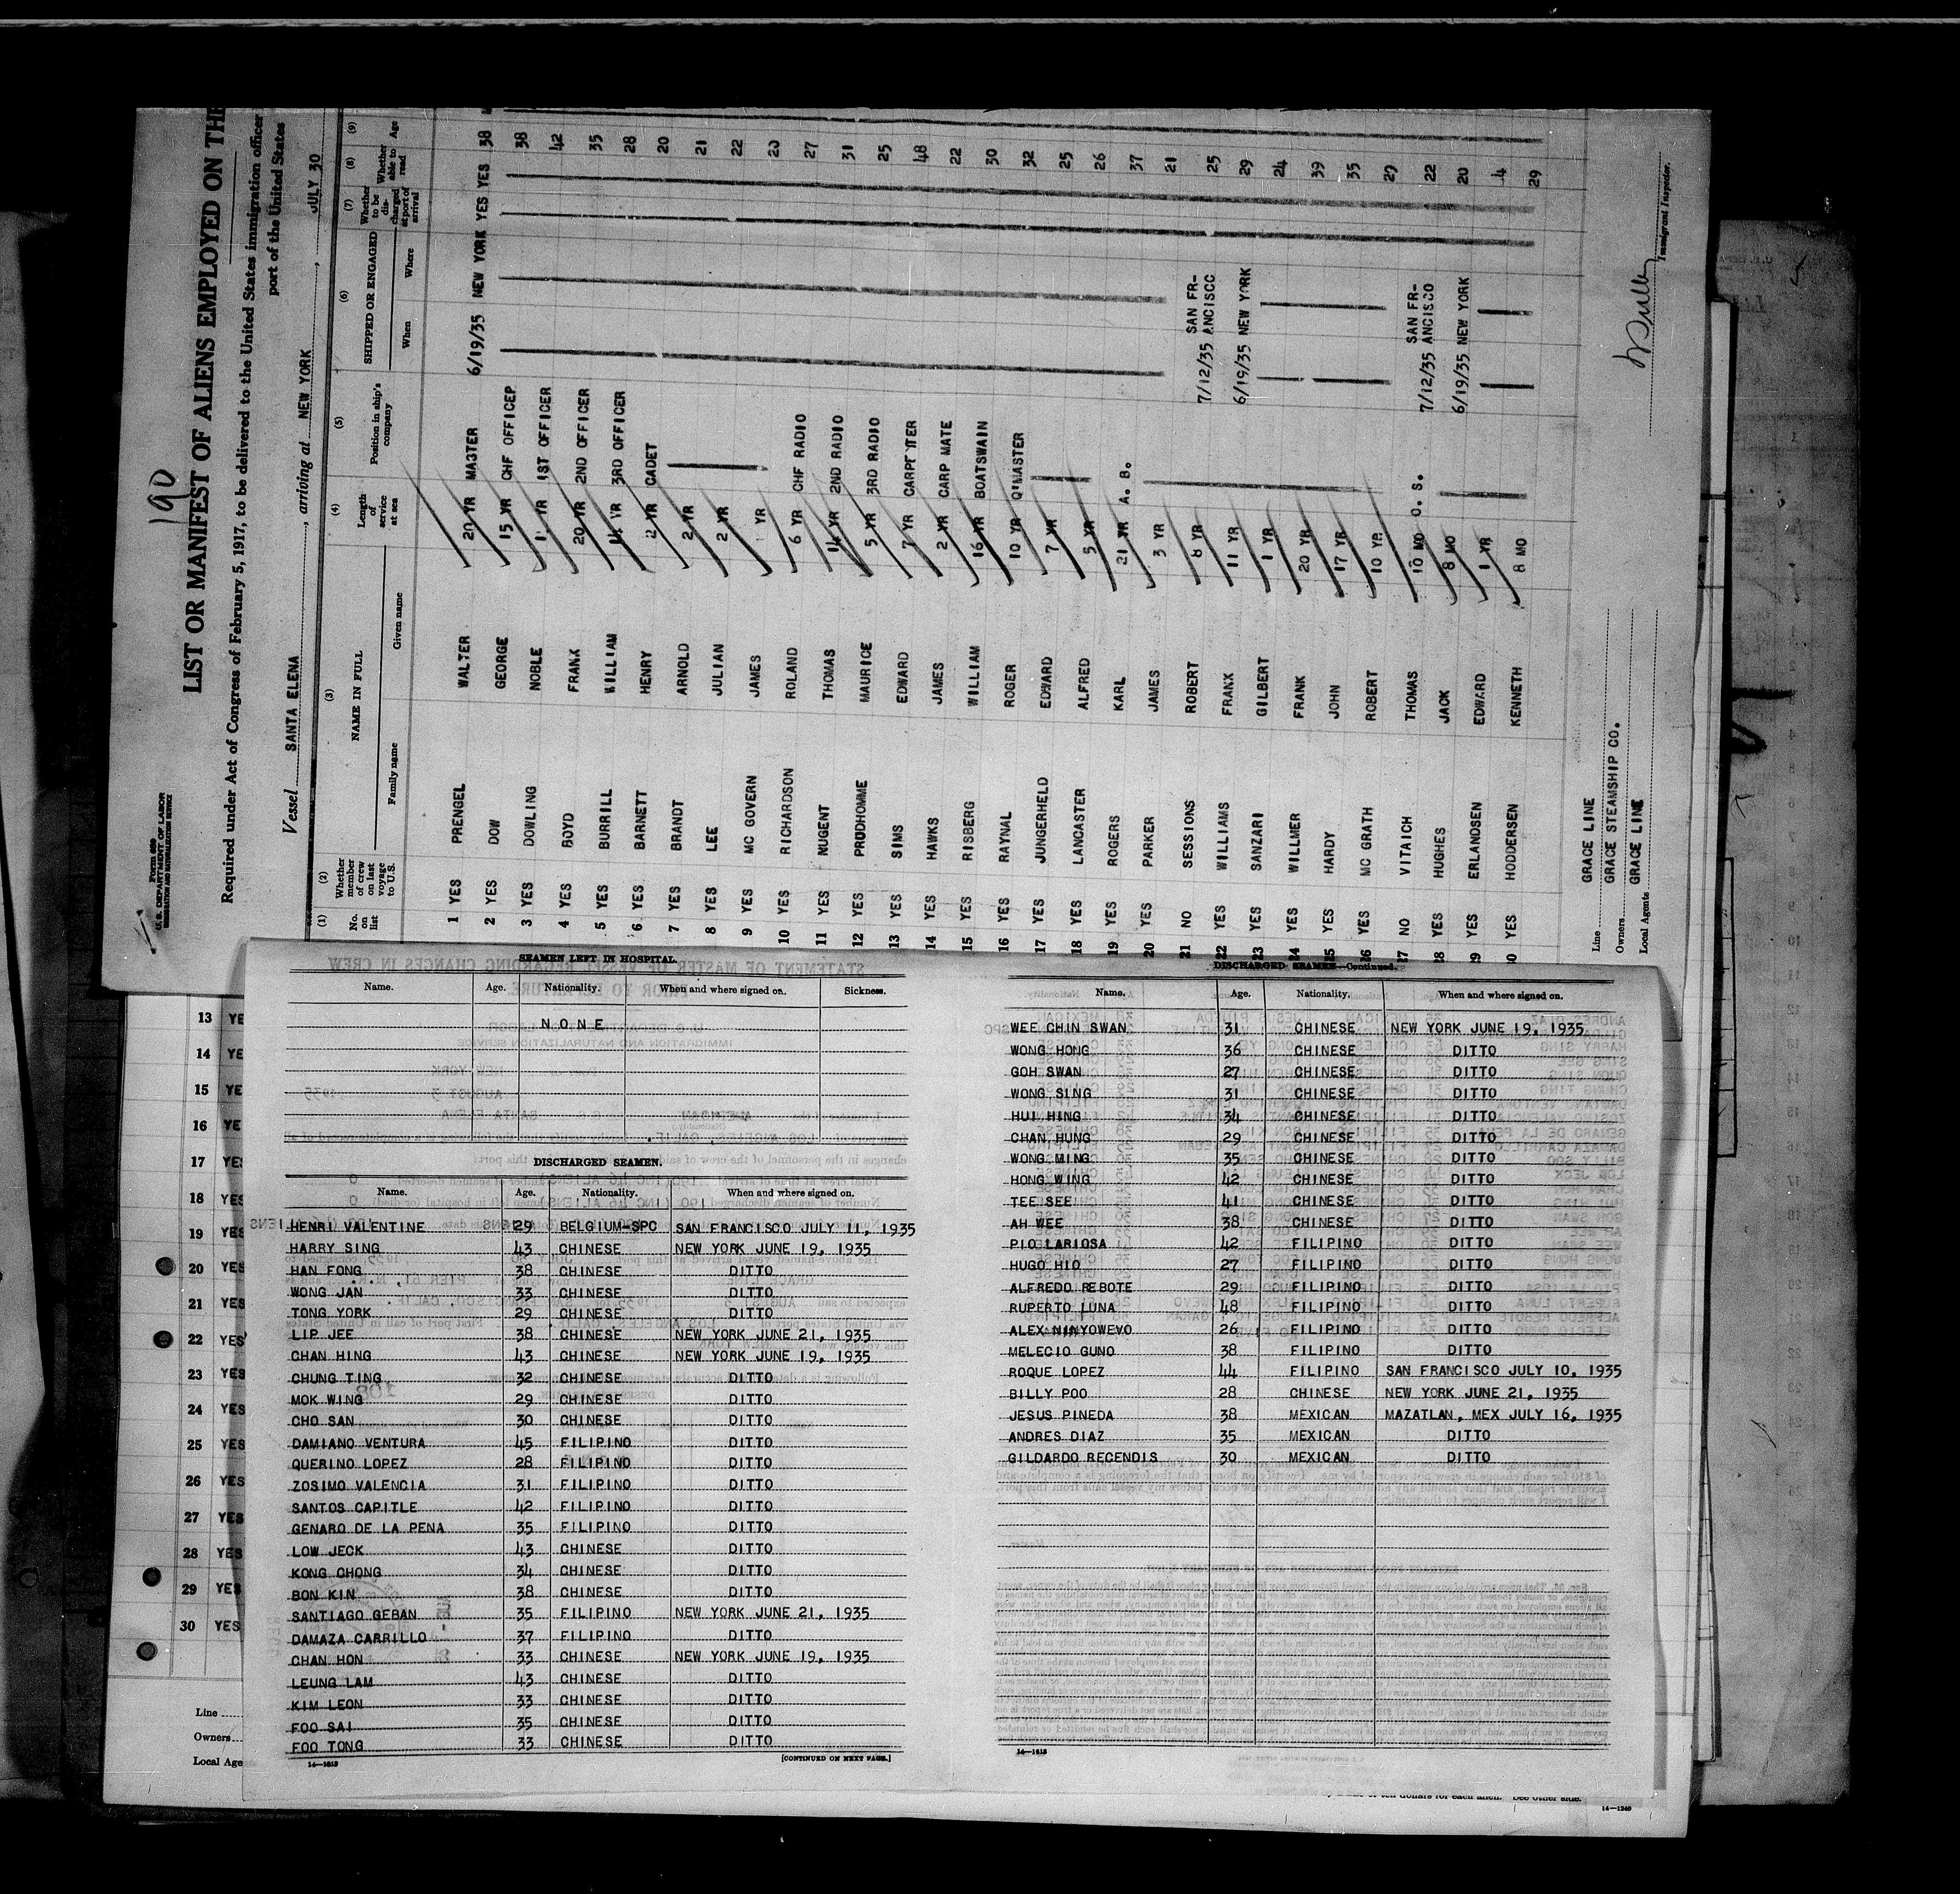 190
Form 689
U.S. DEPARTMENT OF LABOR
IMMIGRATION AND NATURALIZATION SERVICE
LIST OR MANIFEST OF ALIENS EMPLOYED ON THE
Required under Act of Congress of February 5, 1917, to be delivered to the United States immigration officer
port of the United States
Vessel SANTA ELENA, arriving at NEW YORK, JULY 30
(1) (2) (3) (4) (5) (6) (7) (8) (9)
No. on list Whether member of crew on last voyage to U.S. NAME IN FULL Family name Given name Length of service at sea Position in ship's company SHIPPED OR ENGAGED When Where Whether to be discharged at port of arrival Whether able to read Age
1 YES PRENGEL WALTER 20 YR MASTER 6/19/35 NEW YORK YES YES 38
2 YES DOW GEORGE 15 YR CHF OFFICER 38
3 YES DOWLING NOBLE YR 1ST OFFICER 42
4 YES BOYD FRANK 20 YR 2ND OFFICER 35
5 YES BURRILL WILLIAM YR 3RD OFFICER 28
6 YES BARNETT HENRY YR CADET 20
7 YES BRANDT ARNOLD 2 YR 21
8 YES LEE JULIAN 2 YR 22
9 YES MC GOVERN JAMES YR 20
10 YES RICHARDSON ROLAND 6 YR CHF RADIO 27
11 YES NUGENT THOMAS 14 YR 2ND RADIO 31
12 YES PRUDHOMME MAURICE 5 YR 3RD RADIO 25
13 YES SIMS EDWARD 7 YR CARPENTER 48
14 YES HAWKS JAMES 2 YR CARP MATE 22
15 YES RISBERG WILLIAM 16 YR BOATSWAIN 30
16 YES RAYNAL ROGER 10 YR Q'MASTER 32
17 YES JUNGERHELD EDWARD 7 YR 25
18 YES LANCASTER ALFRED 5 YR 26
19 YES ROGERS KARL 21 YR A. B. 37
20 YES PARKER JAMES 3 YR 21
21 NO SESSIONS ROBERT 8 YR 7/12/35 SAN FRANCISCO 25
22 YES WILLIAMS FRANK 11 YR 6/19/35 NEW YORK 29
23 YES SANZARI GILBERT 1 YR 24
24 YES WILLMER FRANK 20 YR 39
25 YES HARDY JOHN 17 YR 35
26 YES MC GRATH ROBERT 10 YR 29
27 NO VITAICH THOMAS 10 MO O. S. 7/12/35 SAN FRANCISCO 22
28 YES HUGHES JACK 8 MO 6/19/35 NEW YORK 20
29 YES ERLANDSEN EDWARD 1 YR 4
30 YES HODDERSEN KENNETH 8 MO 29
Line GRACE LINE
Owners GRACE STEAMSHIP CO.
Local Agents GRACE LINE
Immigrant Inspector.
SEAMEN LEFT IN HOSPITAL.
Name. Age. Nationality. When and where signed on. Sickness.
NONE
DISCHARGED SEAMEN.
Name. Age. Nationality. When and where signed on.
HENRI VALENTINE 29 BELGIUM-SPC SAN FRANCISCO JULY 11, 1935
HARRY SING 43 CHINESE NEW YORK JUNE 19, 1935
HAN FONG 38 CHINESE DITTO
WONG JAN 33 CHINESE DITTO
TONG YORK 29 CHINESE DITTO
LIP JEE 38 CHINESE NEW YORK JUNE 21, 1935
CHAN HING 43 CHINESE NEW YORK JUNE 19, 1935
CHUNG TING 32 CHINESE DITTO
MOK WING 29 CHINESE DITTO
CHO SAN 30 CHINESE DITTO
DAMIANO VENTURA 45 FILIPINO DITTO
QUERINO LOPEZ 28 FILIPINO DITTO
ZOSIMO VALENCIA 31 FILIPINO DITTO
SANTOS CAPITLE 42 FILIPINO DITTO
GENARO DE LA PENA 35 FILIPINO DITTO
LOW JECK 43 CHINESE DITTO
KONG CHONG 34 CHINESE DITTO
BON KIN 38 CHINESE DITTO
SANTIAGO GEBAN 35 FILIPINO NEW YORK JUNE 21, 1935
DAMAZA CARRILLO 37 FILIPINO DITTO
CHAN HON 33 CHINESE NEW YORK JUNE 19, 1935
LEUNG LAM 43 CHINESE DITTO
KIM LEON 33 CHINESE DITTO
FOO SAI 35 CHINESE DITTO
FOO TONG 33 CHINESE DITTO
14—1613 [CONTINUED ON NEXT PAGE.]
DISCHARGED SEAMEN—Continued.
Name. Age. Nationality. When and where signed on.
WEE CHIN SWAN 31 CHINESE NEW YORK JUNE 19, 1935
WONG HONG 36 CHINESE DITTO
GOH SWAN 27 CHINESE DITTO
WONG SING 31 CHINESE DITTO
HUI HING 34 CHINESE DITTO
CHAN HUNG 29 CHINESE DITTO
WONG MING 35 CHINESE DITTO
HONG WING 42 CHINESE DITTO
TEE SEE 41 CHINESE DITTO
AH WEE 38 CHINESE DITTO
PIO LARIOSA 42 FILIPINO DITTO
HUGO HIO 27 FILIPINO DITTO
ALFREDO REBOTE 29 FILIPINO DITTO
RUPERTO LUNA 48 FILIPINO DITTO
ALEX NINYOWEVO 26 FILIPINO DITTO
MELECIO GUNO 38 FILIPINO DITTO
ROQUE LOPEZ 44 FILIPINO SAN FRANCISCO JULY 10, 1935
BILLY POO 28 CHINESE NEW YORK JUNE 21, 1935
JESUS PINEDA 38 MEXICAN MAZATLAN, MEX JULY 16, 1935
ANDRES DIAZ 35 MEXICAN DITTO
GILDARDO RECENDIS 30 MEXICAN DITTO
14—1613
13 YE
14 YE
15 YE
16 YE
17 YES
18 YES
19 YES
20 YES
21 YES
22 YES
23 YES
24 YES
25 YES
26 YES
27 YES
28 YES
29 YES
30 YES
Line
Owners
Local Age
of ten dollars for each alien. See other side.
14—1240